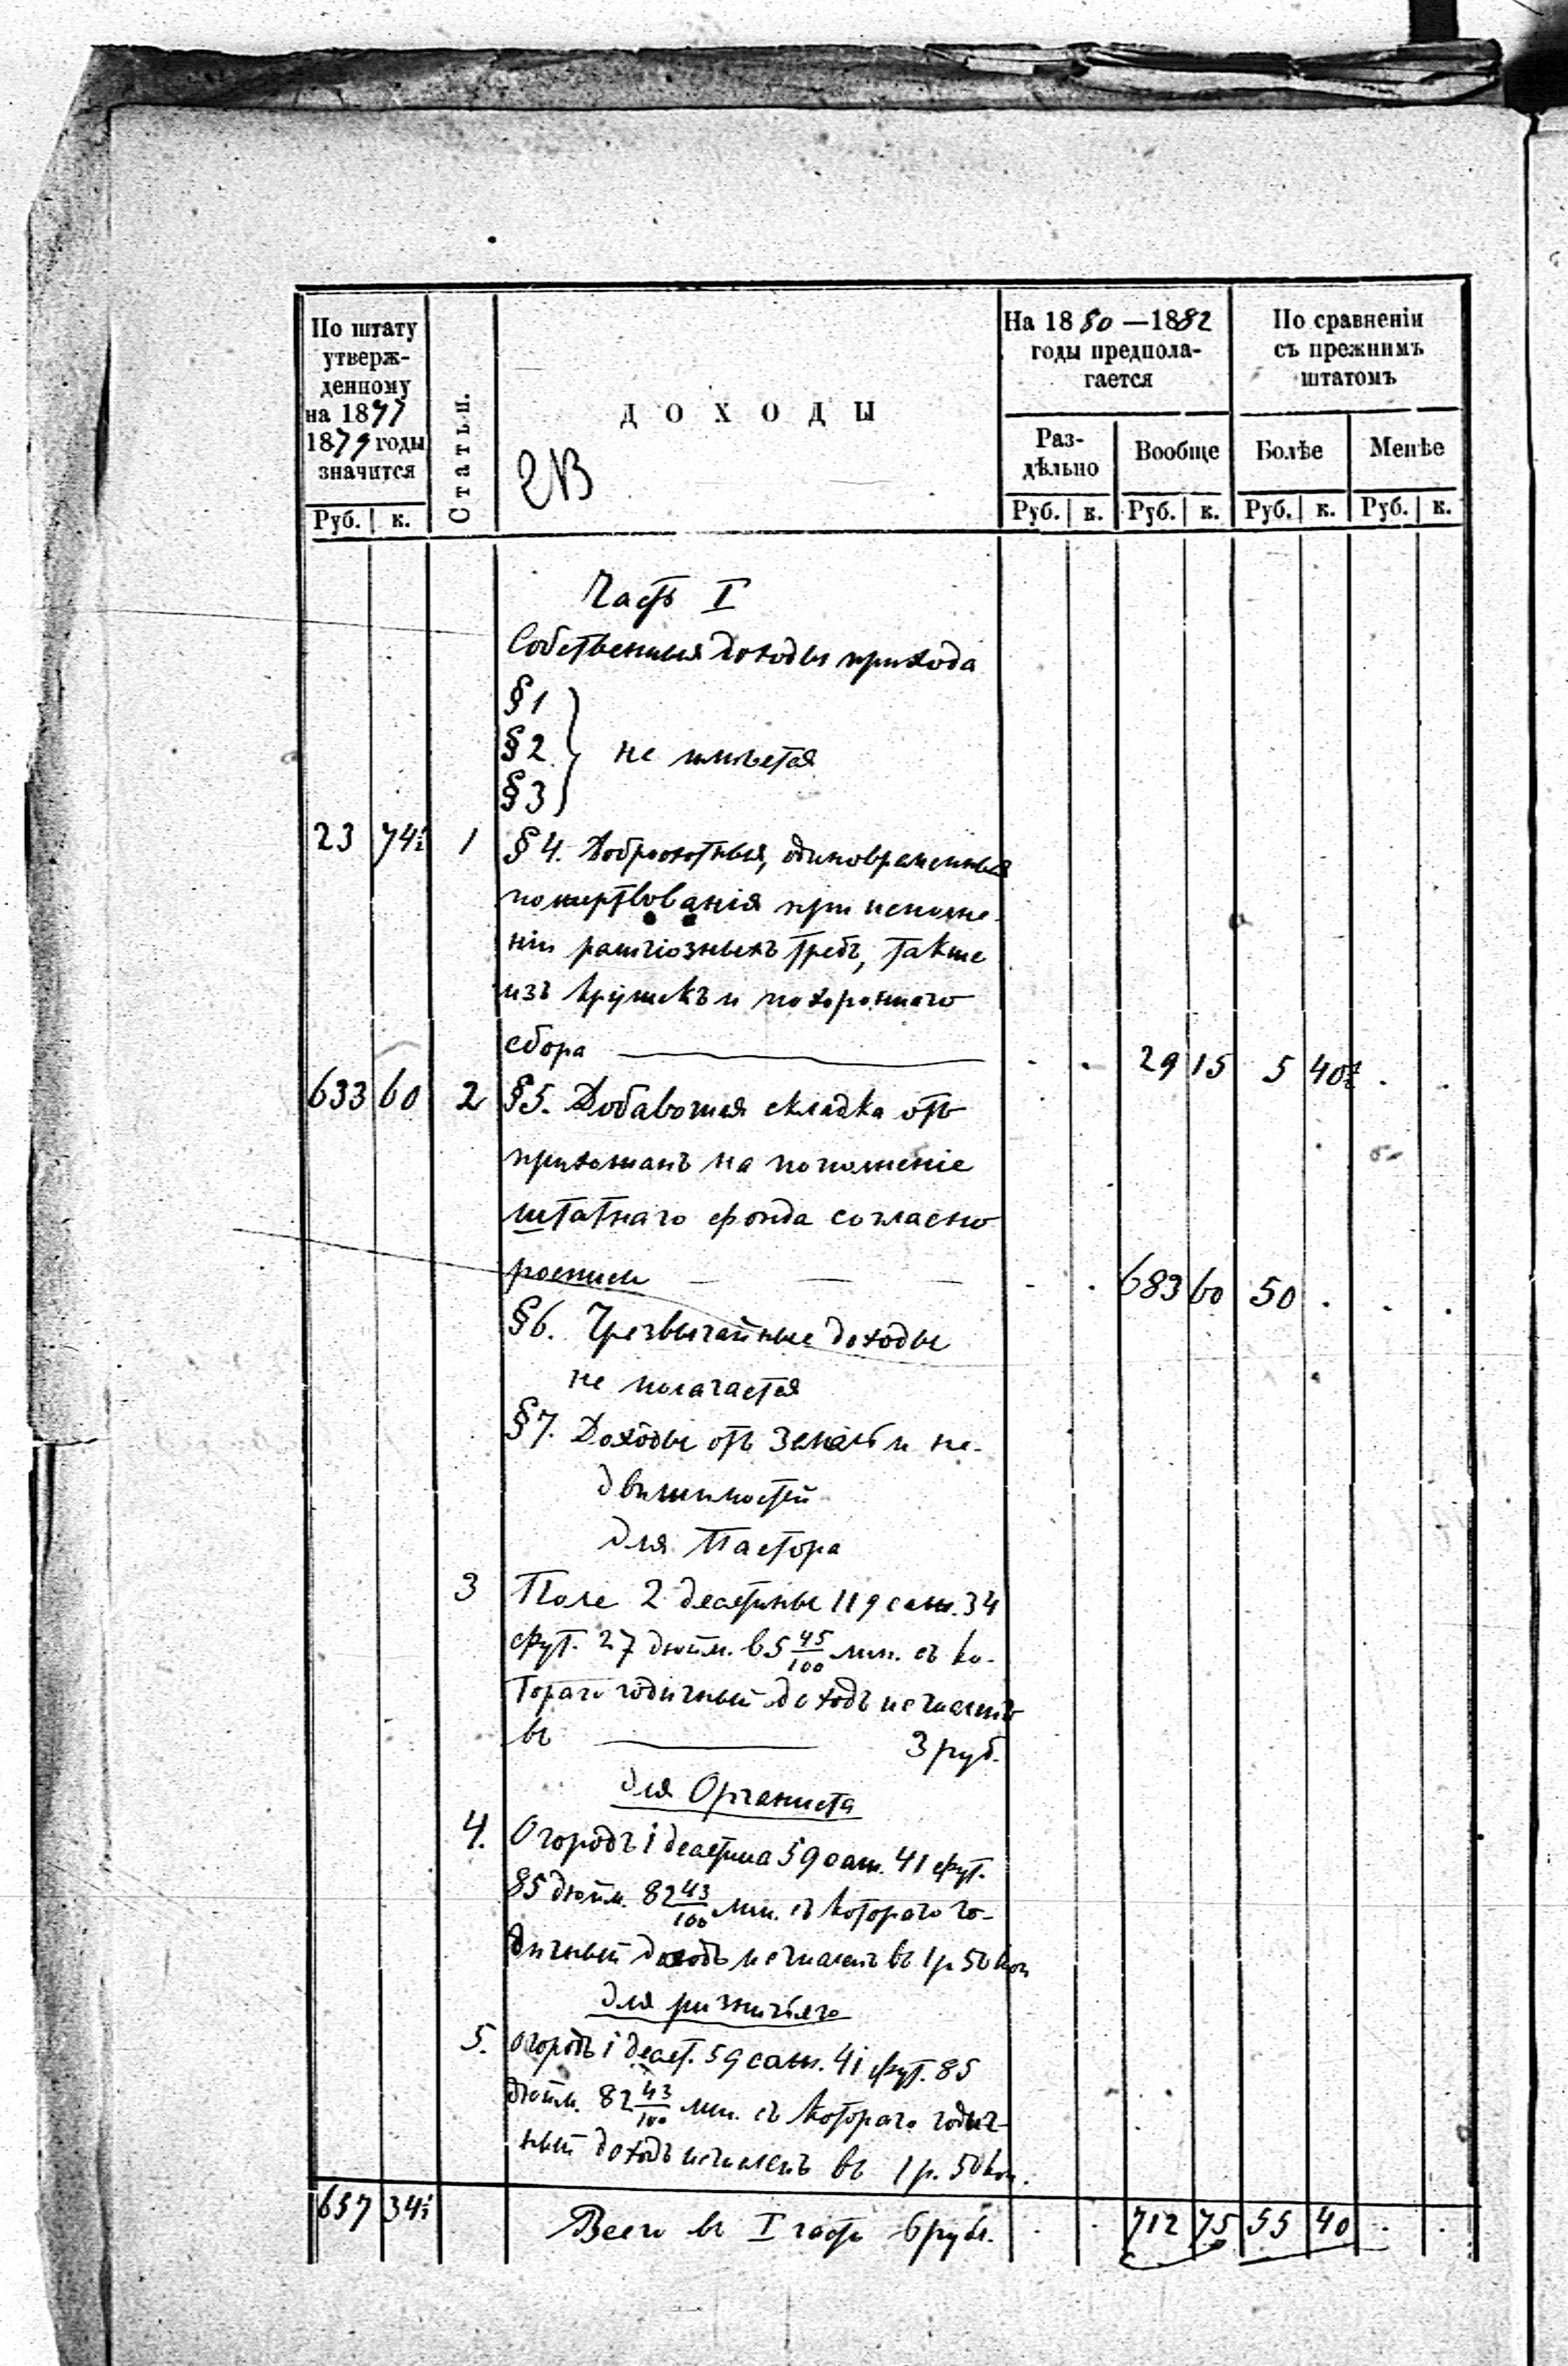 По штату
утверж-
денному
на 1877
1879 годы
значится
Руб. к.
Статьи.
ДОХОДЫ
На 1880—1882
годы предпола-
гается
Раз-
дѣльно
Вообще
Руб. к. Руб. к.
По сравненіи
съ прежнимъ
штатомъ
Болѣе Менѣе
Руб. к. Руб. к.
Часть I
Собственныя доходы прихода
§1
§2 не имѣется
§3
23 74½ 1 §4. Доброхотныя, единовременныя
пожертвованія при исполне-
ніи религіозныхъ требъ, также
изъ кружекъ и похороннаго
сбора 29 15 5 40½
633 60 2 §5. Добавочная складка отъ
прихожанъ на пополненіе
штатнаго фонда согласно
росписи 683 60 50
§6. Чрезвычайные доходы
не полагается
§7. Доходы отъ земель и не-
движимостей
для Пастора
3 Поле 2 десятины 119 саж. 34
фут. 27 дюйм. 65 45/100 лин. съ ко-
тораго годичный доходъ исчисленъ
въ 3 руб.
для Органиста
4. Огородъ 1 десятина 59 саж. 41 фут.
85 дюйм. 82 43/100 лин. съ котораго го-
дичный доходъ исчисленъ въ 1 р 50 коп
для ризничьяго
5. Огородъ 1 десят. 59 саж. 41 фут. 85
дюйм. 82 43/100 лин. съ котораго годич-
ный доходъ исчисленъ въ 1 р. 50 коп.
657 34½ Всего въ I части 6 рубл. 712 75 55 40